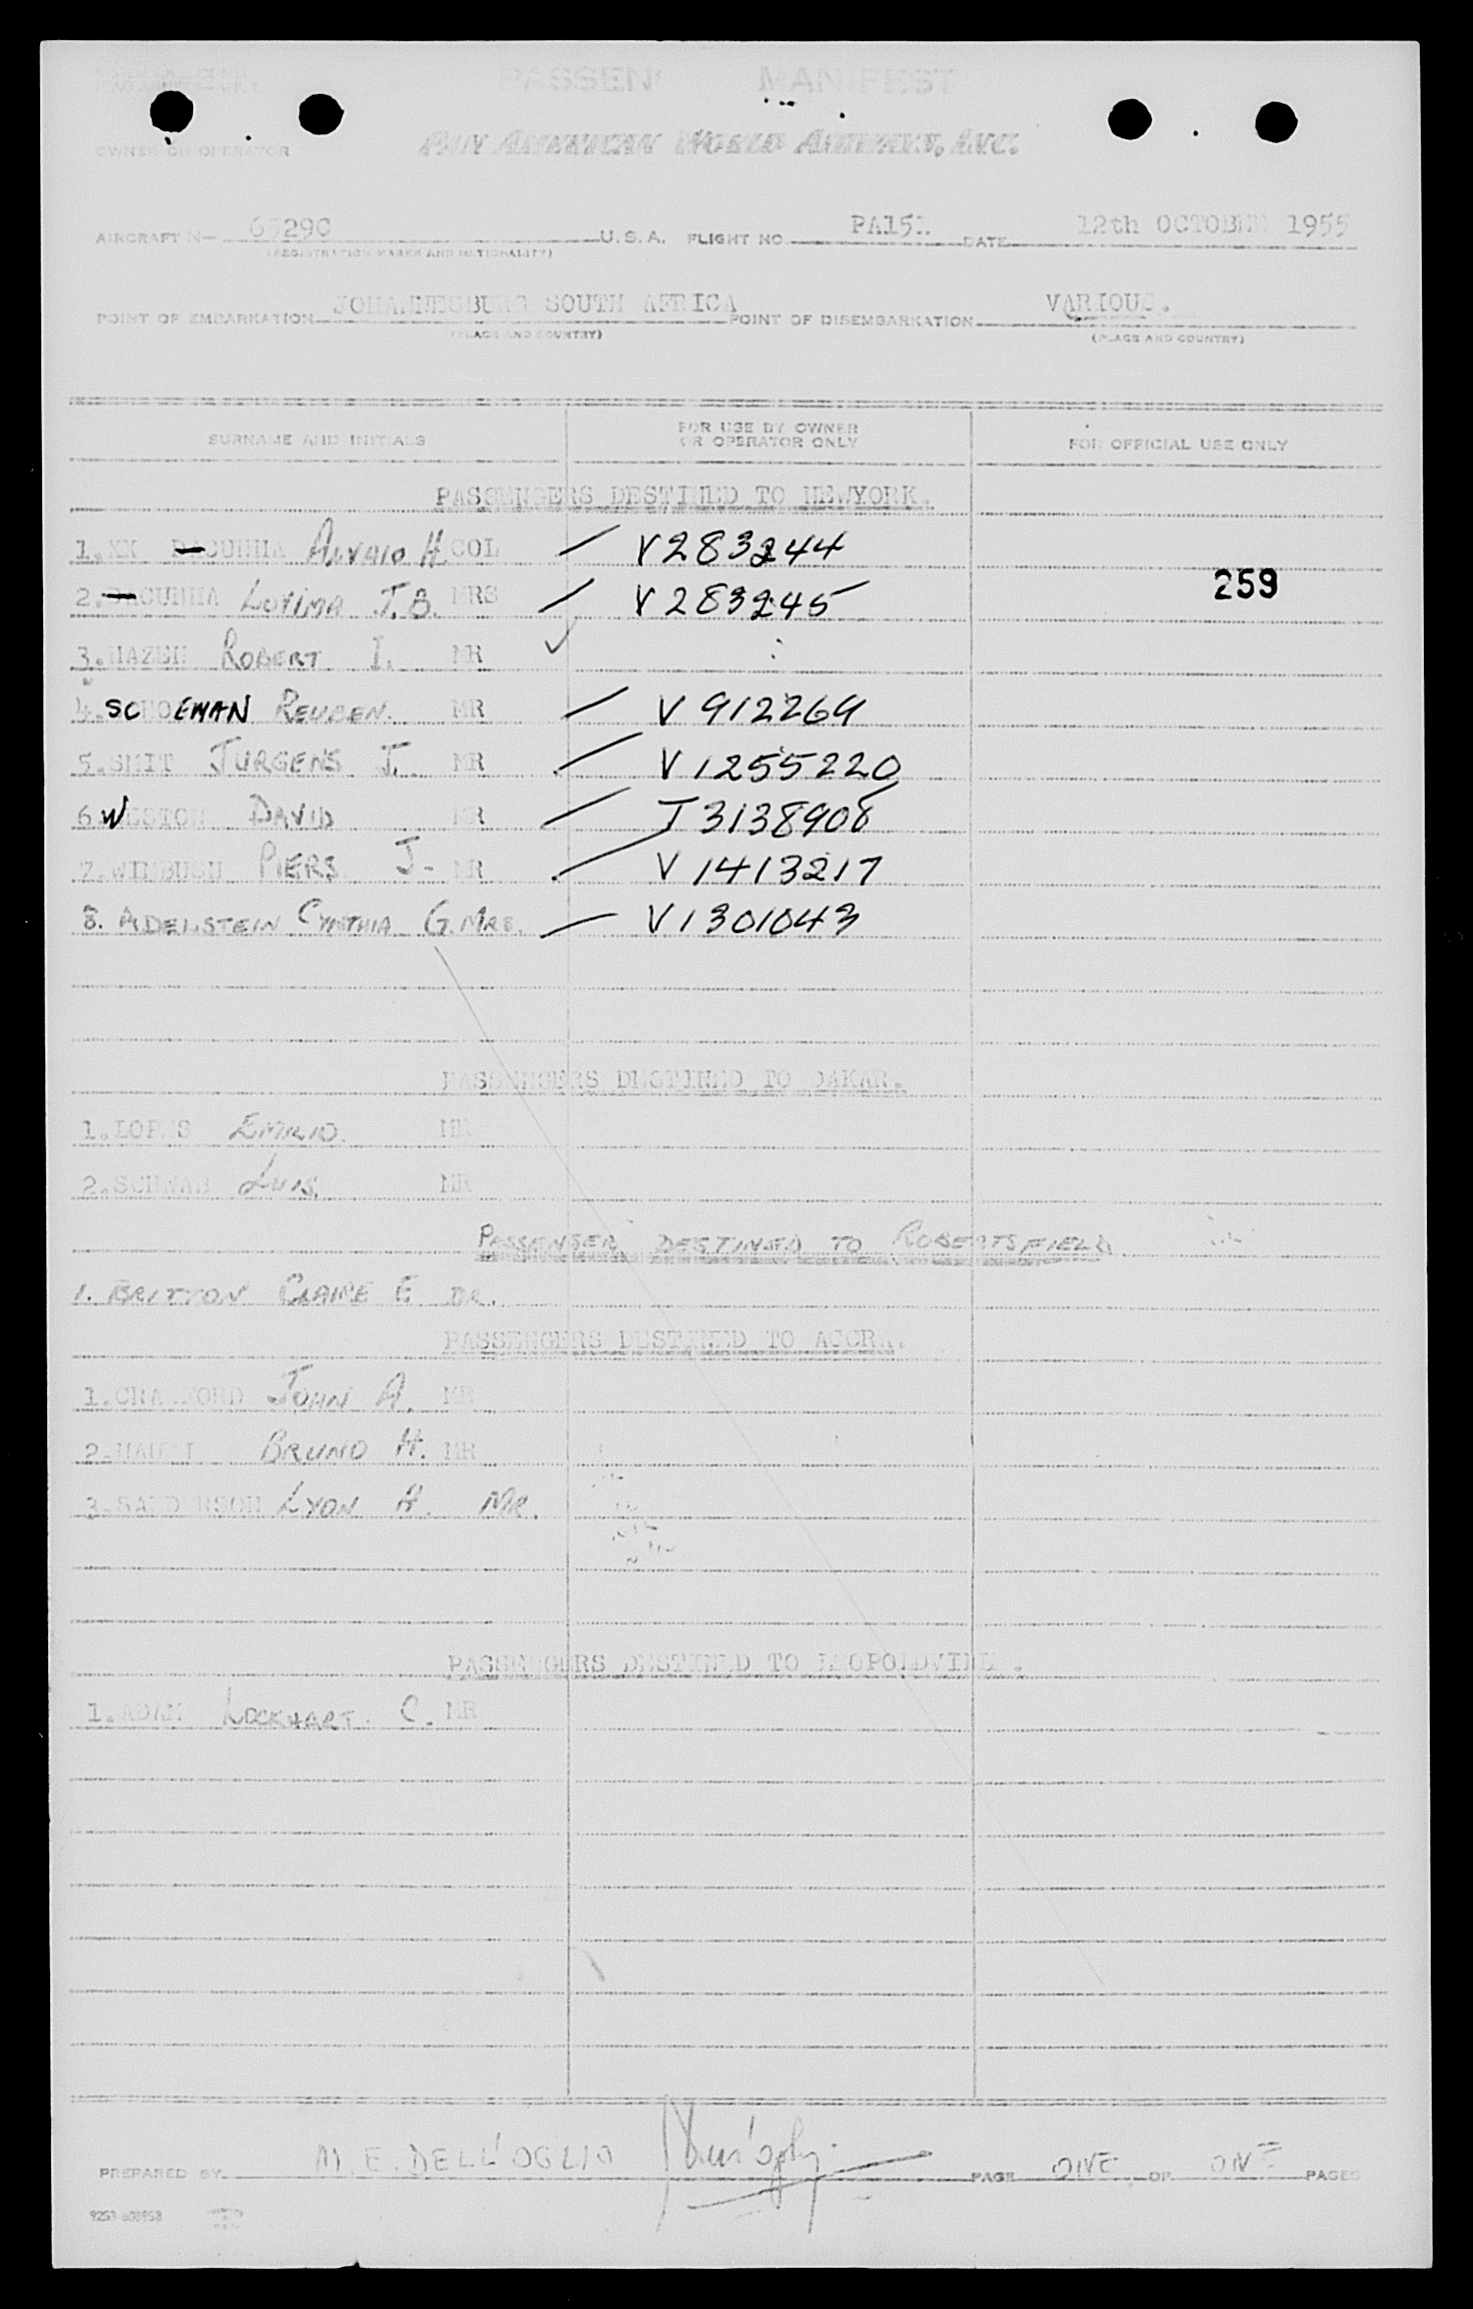 PASSEN MANIFEST
OWNER OR OPERATOR PAN AMERICAN WORLD AIRWAYS, INC.
AIRCRAFT N— 6529C U.S.A. FLIGHT NO. PA151 DATE 12th OCTOBER 1955
(REGISTRATION MARKS AND NATIONALITY)
POINT OF EMBARKATION JOHANNESBURG SOUTH AFRICA POINT OF DISEMBARKATION VARIOUS.
(PLACE AND COUNTRY) (PLACE AND COUNTRY)
SURNAME AND INITIALS FOR USE BY OWNER OR OPERATOR ONLY FOR OFFICIAL USE ONLY
PASSENGERS DESTINED TO NEWYORK.
1. XX DACUNHA ALVARO H. COL V283244
2. DACUNHA LOVIMA J.B. MRS V283245 259
3. HAZEN ROBERT I. MR
4. SCHOEMAN REUBEN. MR V912269
5. SMIT JURGENS J. MR V1255220
6. WESTON DAVID MR J3138908
7. WIMBUSH PIERS J. MR V1413217
8. ADELSTEIN CYNTHIA G. MRS. V1301043
PASSENGERS DESTINED TO DAKAR.
1. LOPES EMILIO. MR
2. SCHWAB LUIS. MR
PASSENGER DESTINED TO ROBERTSFIELD
1. BRITTON CLAIRE E DR.
PASSENGERS DESTINED TO ACCRA.
1. CRAWFORD JOHN A. MR
2. BRUNO H. MR
3. SANDERSON LYON H. MR.
PASSENGERS DESTINED TO LEOPOLDVILLE.
1. ADAM LOCKHART. C. MR
PREPARED BY M.E. DELL'OGLIO PAGE ONE OF ONE PAGES